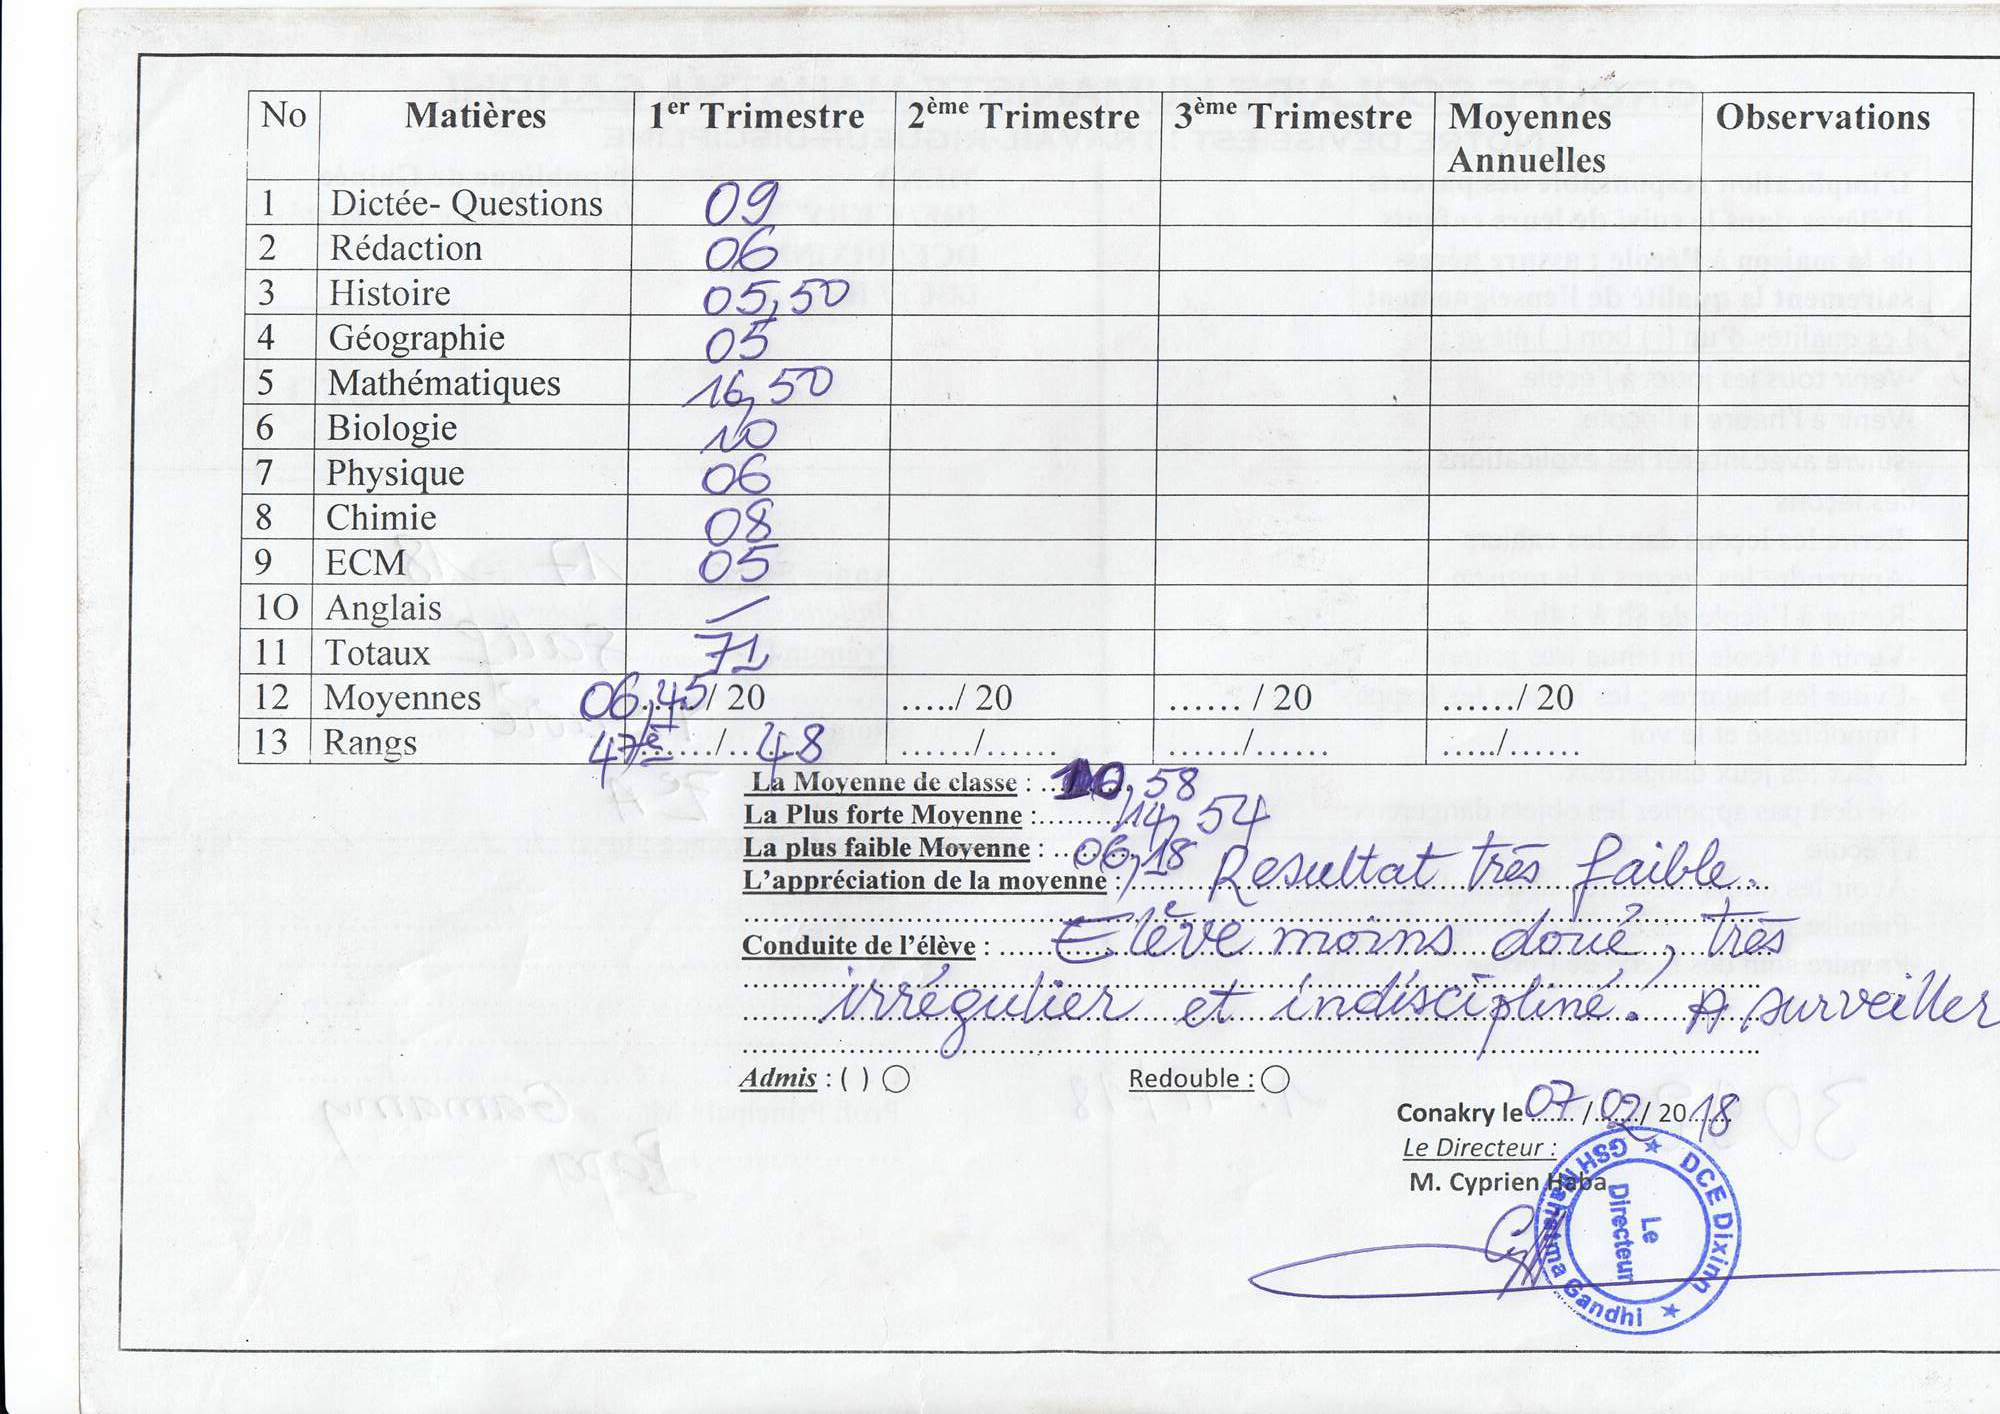 No Matières 1er Trimestre 2ème Trimestre 3ème Trimestre Moyennes Annuelles Observations
1 Dictée- Questions 09
2 Rédaction 06
3 Histoire 05,50
4 Géographie 05
5 Mathématiques 16,50
6 Biologie 10
7 Physique 06
8 Chimie 08
9 ECM 05
1O Anglais /
11 Totaux 71
12 Moyennes 06,45/ 20 …../ 20 …… / 20 ……/20
13 Rangs 47è……/……48 ……/…… ……/…… …../……
La Moyenne de classe : 10,58
La Plus forte Moyenne : 14,54
La plus faible Moyenne : 06,18
L'appréciation de la moyenne : Resultat très faible.
Conduite de l'élève : Elève moins doué, très
irrégulier et indiscipliné. A surveiller
Admis : ( ) Redouble :
Conakry le 07 / 02 / 2018
Le Directeur :
M. Cyprien Haba
DCE Dixinn
GSH Mahatma Gandhi
Le
Directeur